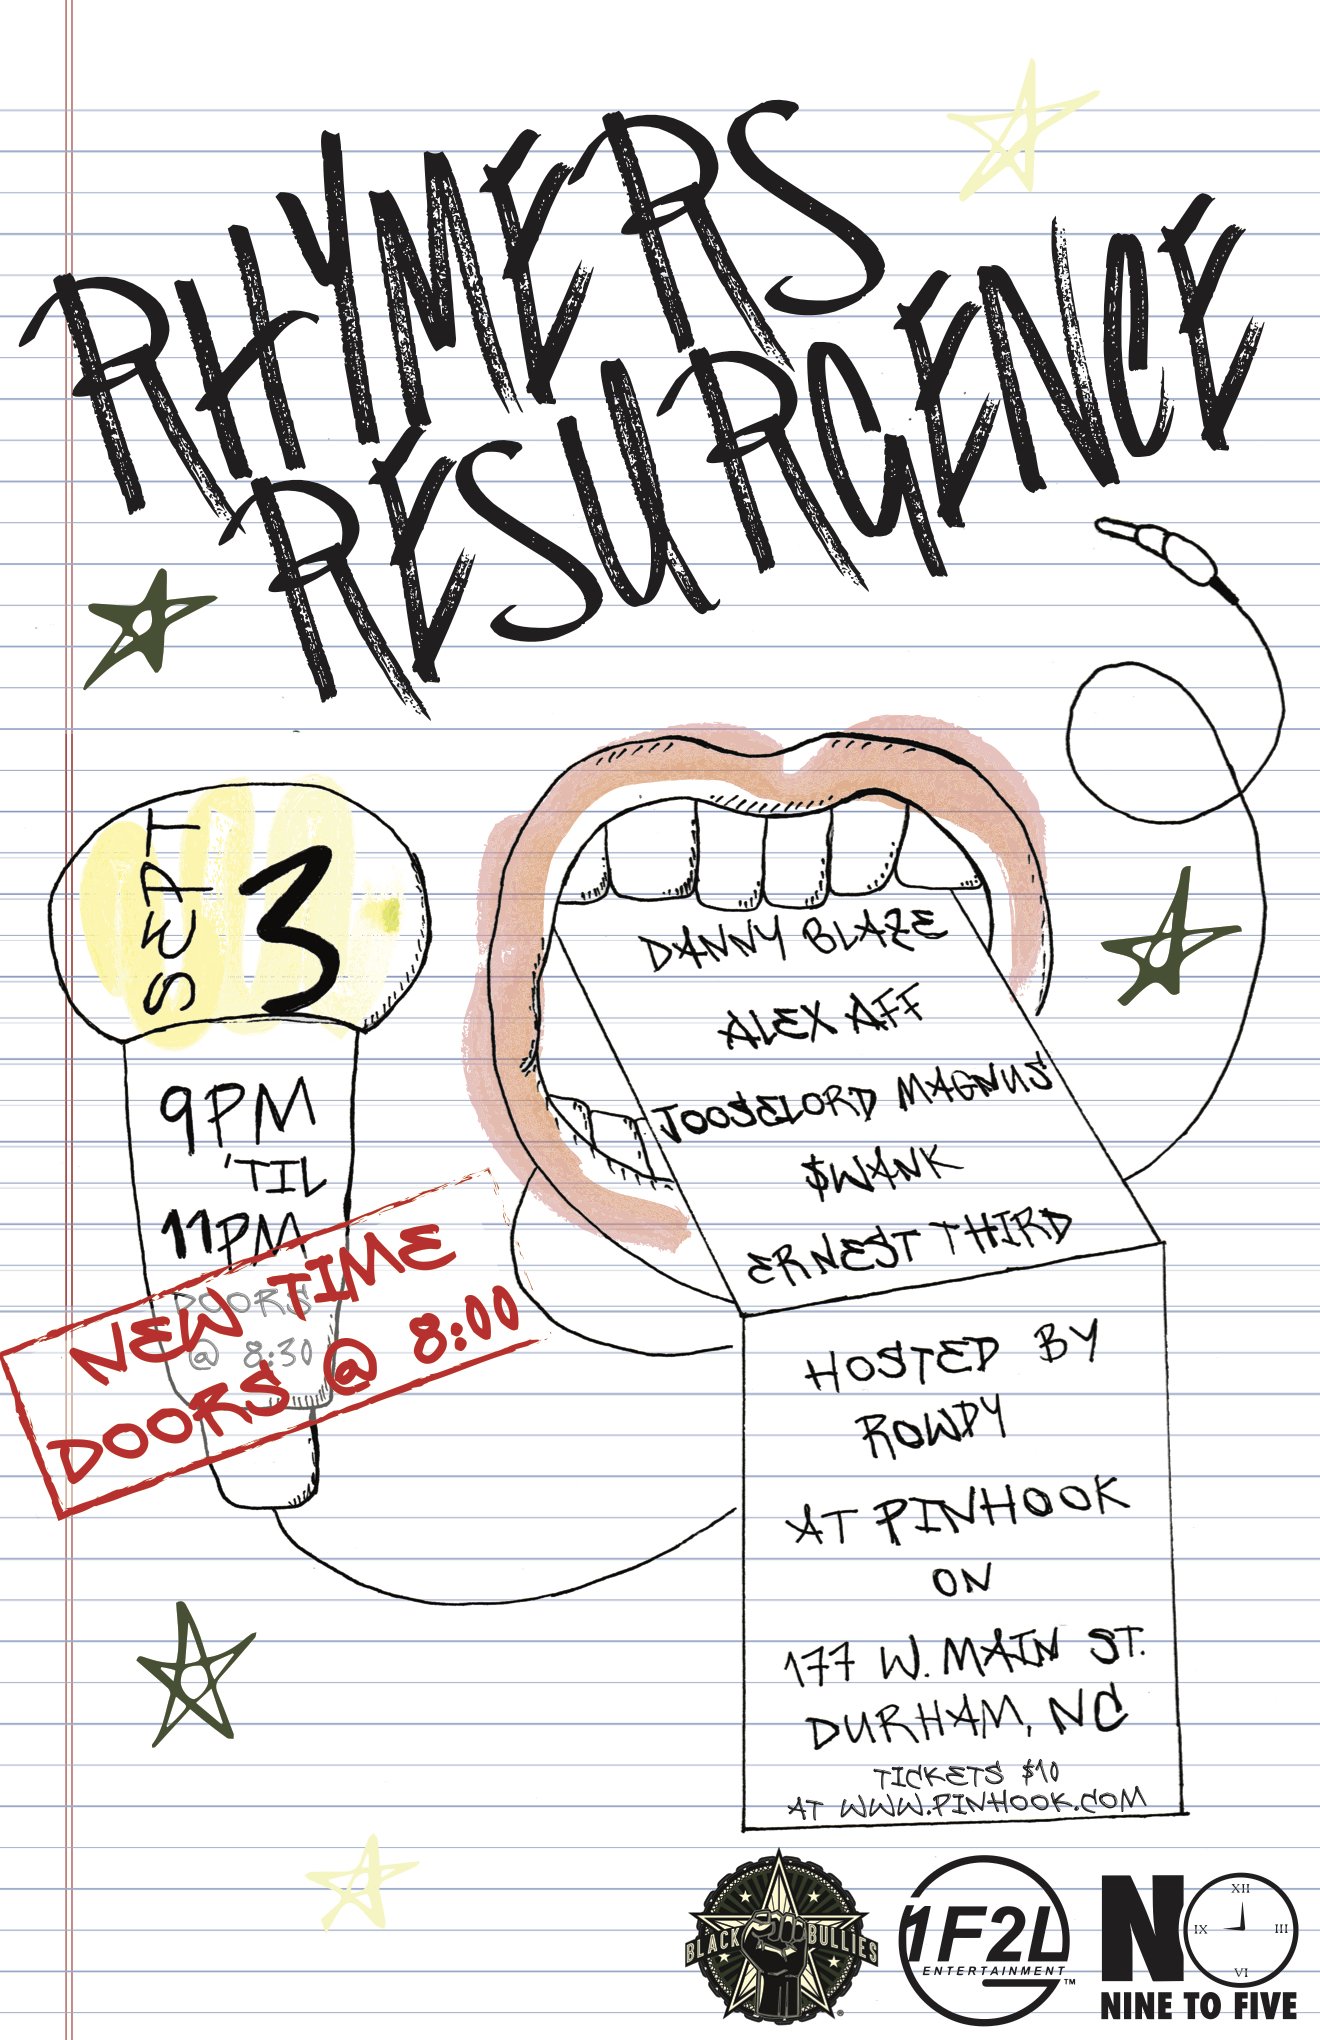 RHYMERS
RESURGENCE
SEPT
3
9PM
'TIL
11PM
DOORS
@ 8:30
NEW TIME
DOORS @ 8:00
DANNY BLAZE
ALEX AFF
JOOSELORD MAGNUS
$WANK
ERNEST THIRD
HOSTED BY
ROWDY
AT PINHOOK
ON
177 W. MAIN ST.
DURHAM, NC
TICKETS $10
AT WWW.PINHOOK.COM
BLACK BULLIES
®
1F2L
ENTERTAINMENT
™
N
XII
IX III
VI
NINE TO FIVE